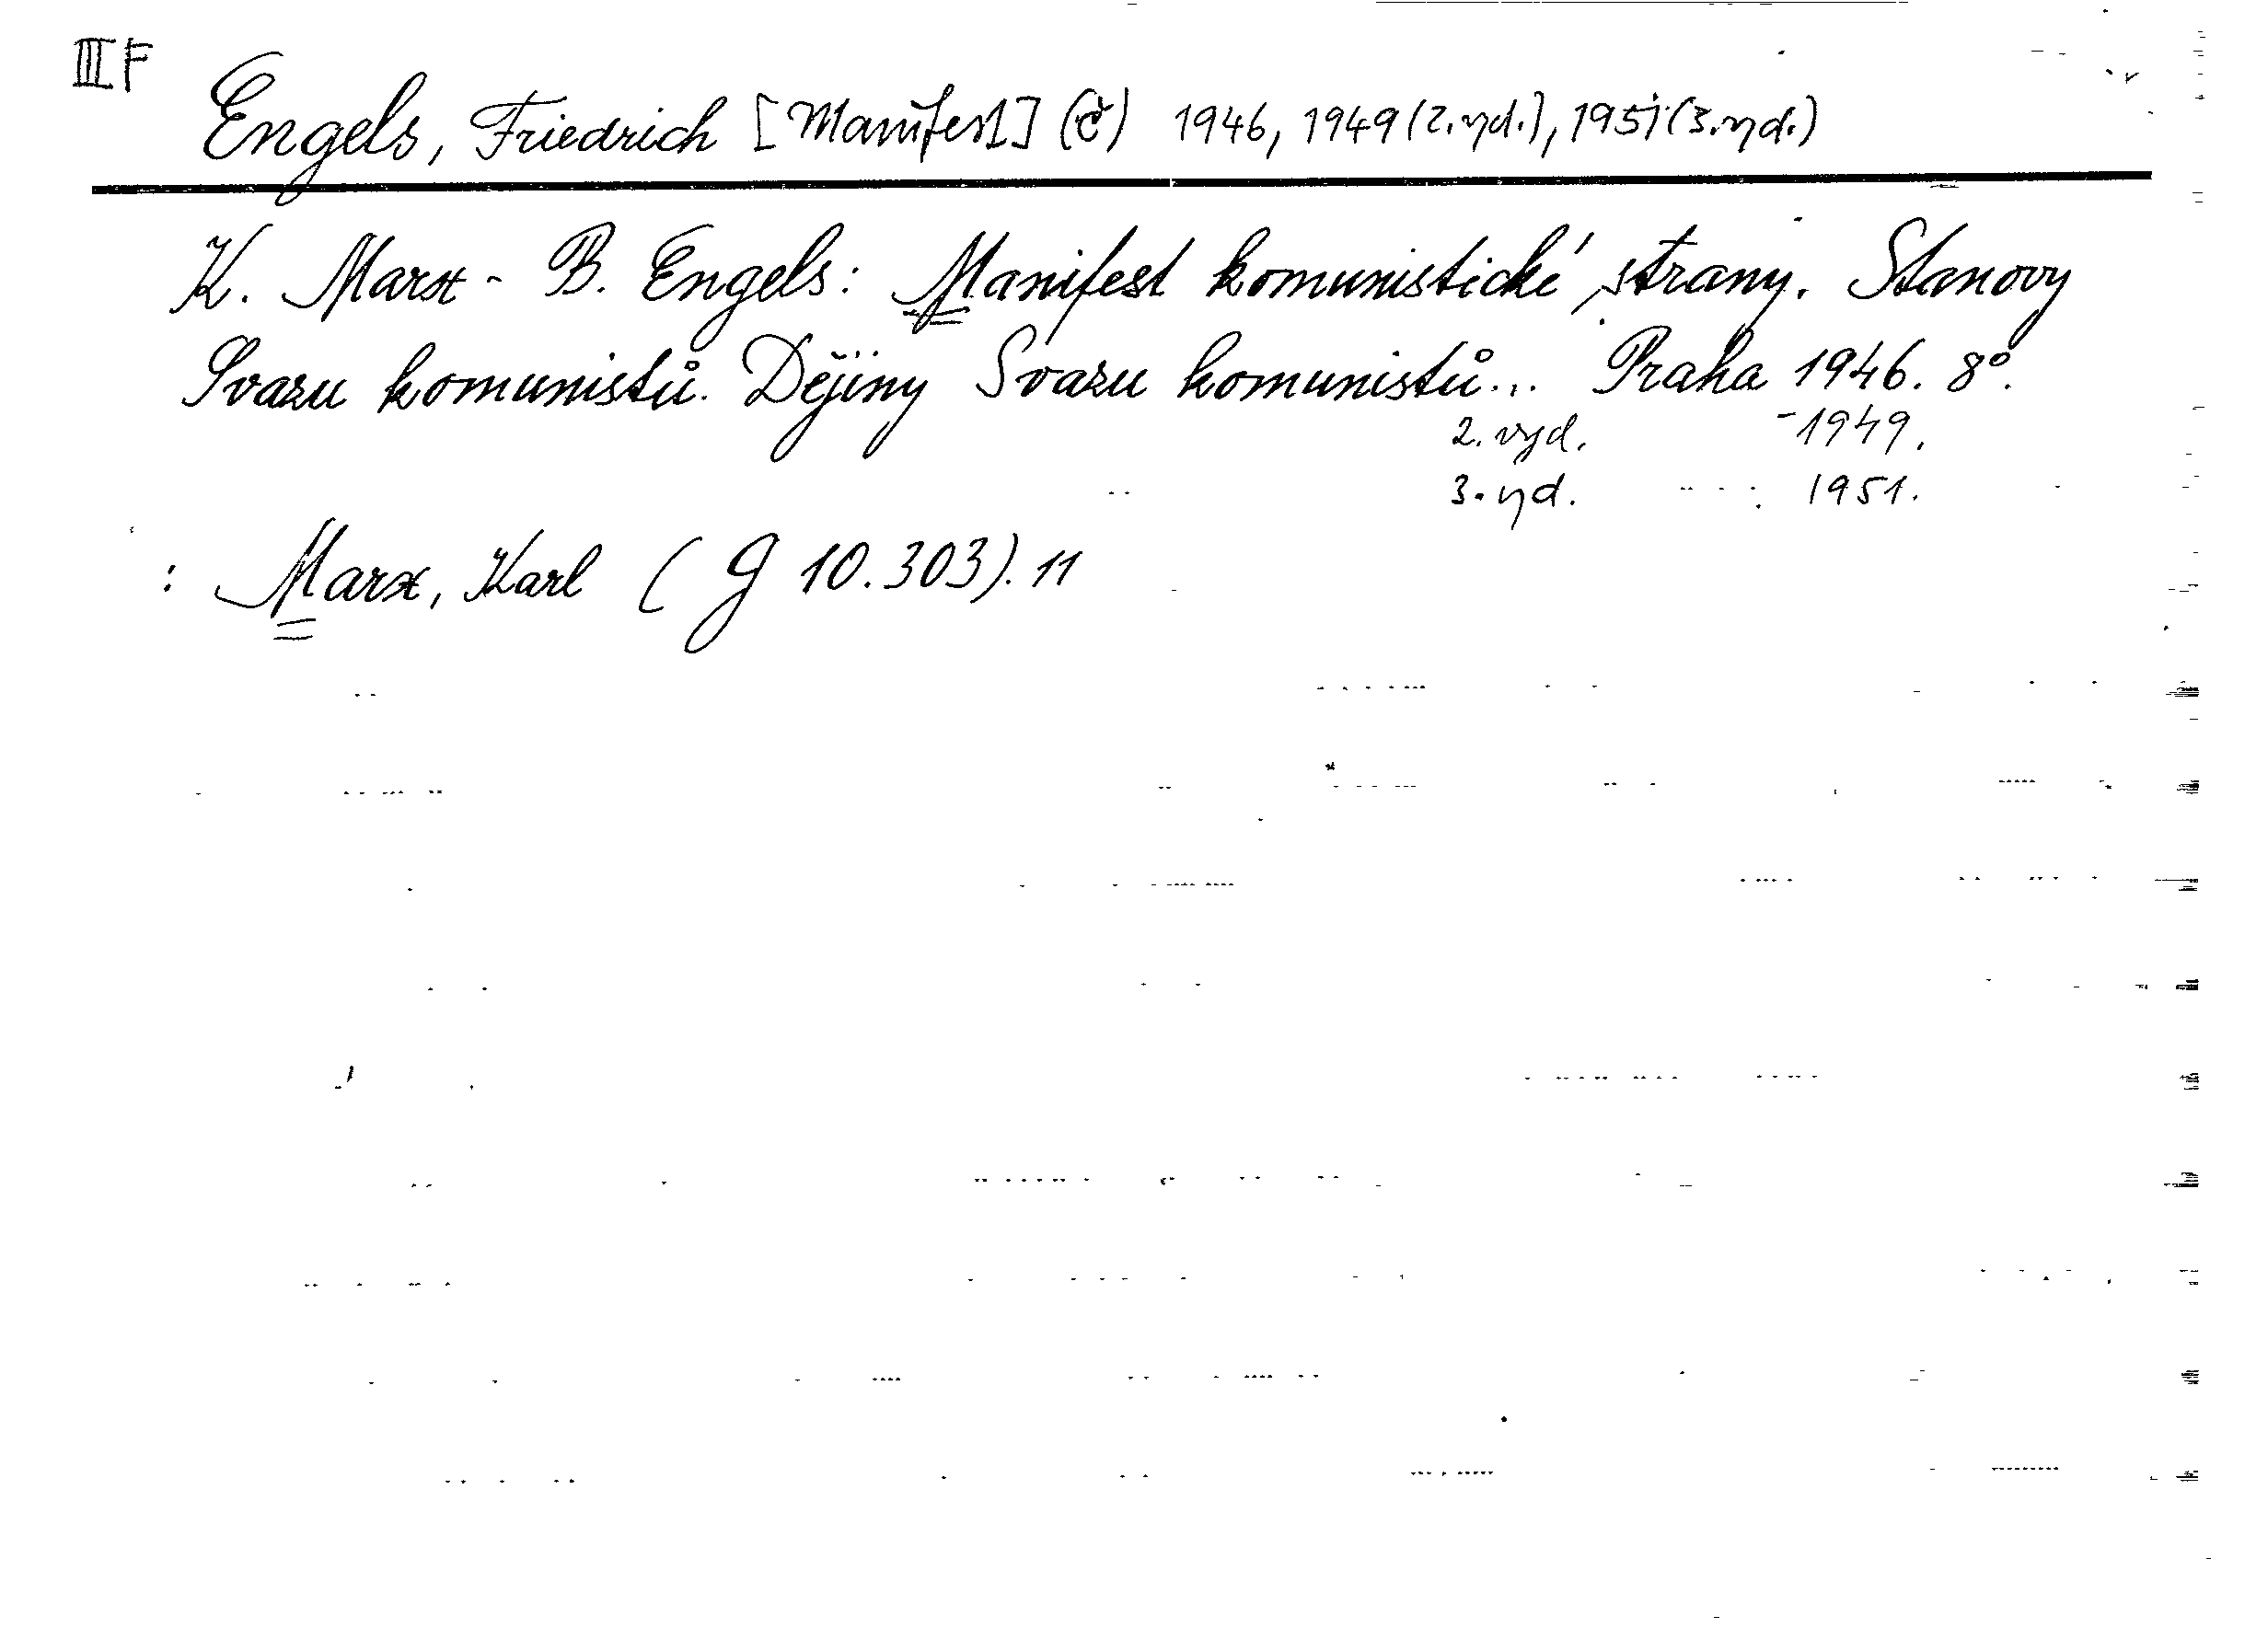 III F
Engels, Friedrich [Manifest] (č) 1946, 1949 (2. vyd.), 1951 (3. vyd.)
K. Marx - B. Engels: Manifest komunistické strany. Stanovy
Svazu komunistů. Dějiny Svazu komunistů... Praha 1946. 8°.
2. vyd. - 1949.
3. vyd. 1951.
: Marx, Karl (G 10.303). 11